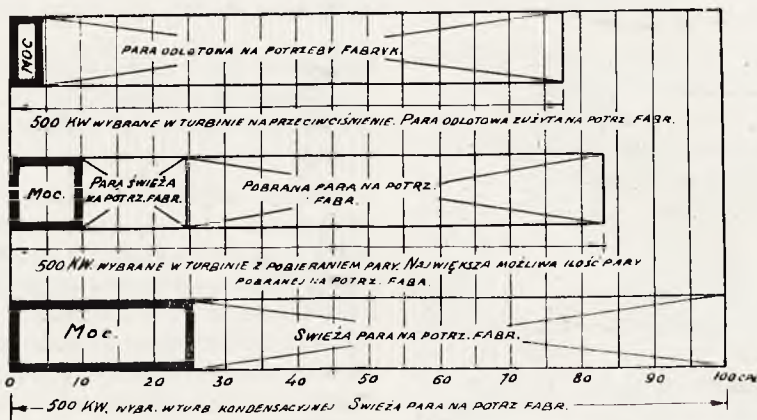 MOC
PARA ODLOTOWA NA POTRZEBY FABRYK.
500 KW WYBRANE W TURBINIE NA PRZECIWCIŚNIENIE. PARA ODLOTOWA ZUŻYTA NA POTRZ FABR.
MOC.
PARA ŚWIEŻA
NA POTRZ. FABR.
POBRANA PARA NA POTRZ.
FABR.
500 KW. WYBRANE W TURBINIE Z POBIERANIEM PARY. NAJWIĘKSZA MOŻLIWA ILOŚĆ PARY
POBRANEJ NA POTRZ. FABR.
Moc.
SWIEŻA PARA NA POTRZ. FABR.
0 10 20 30 40 50 60 70 80 90 100
500 KW. WYBR. W TURB KONDENSACYJNEJ SWIEŻA PARA NA POTRZ FABR.